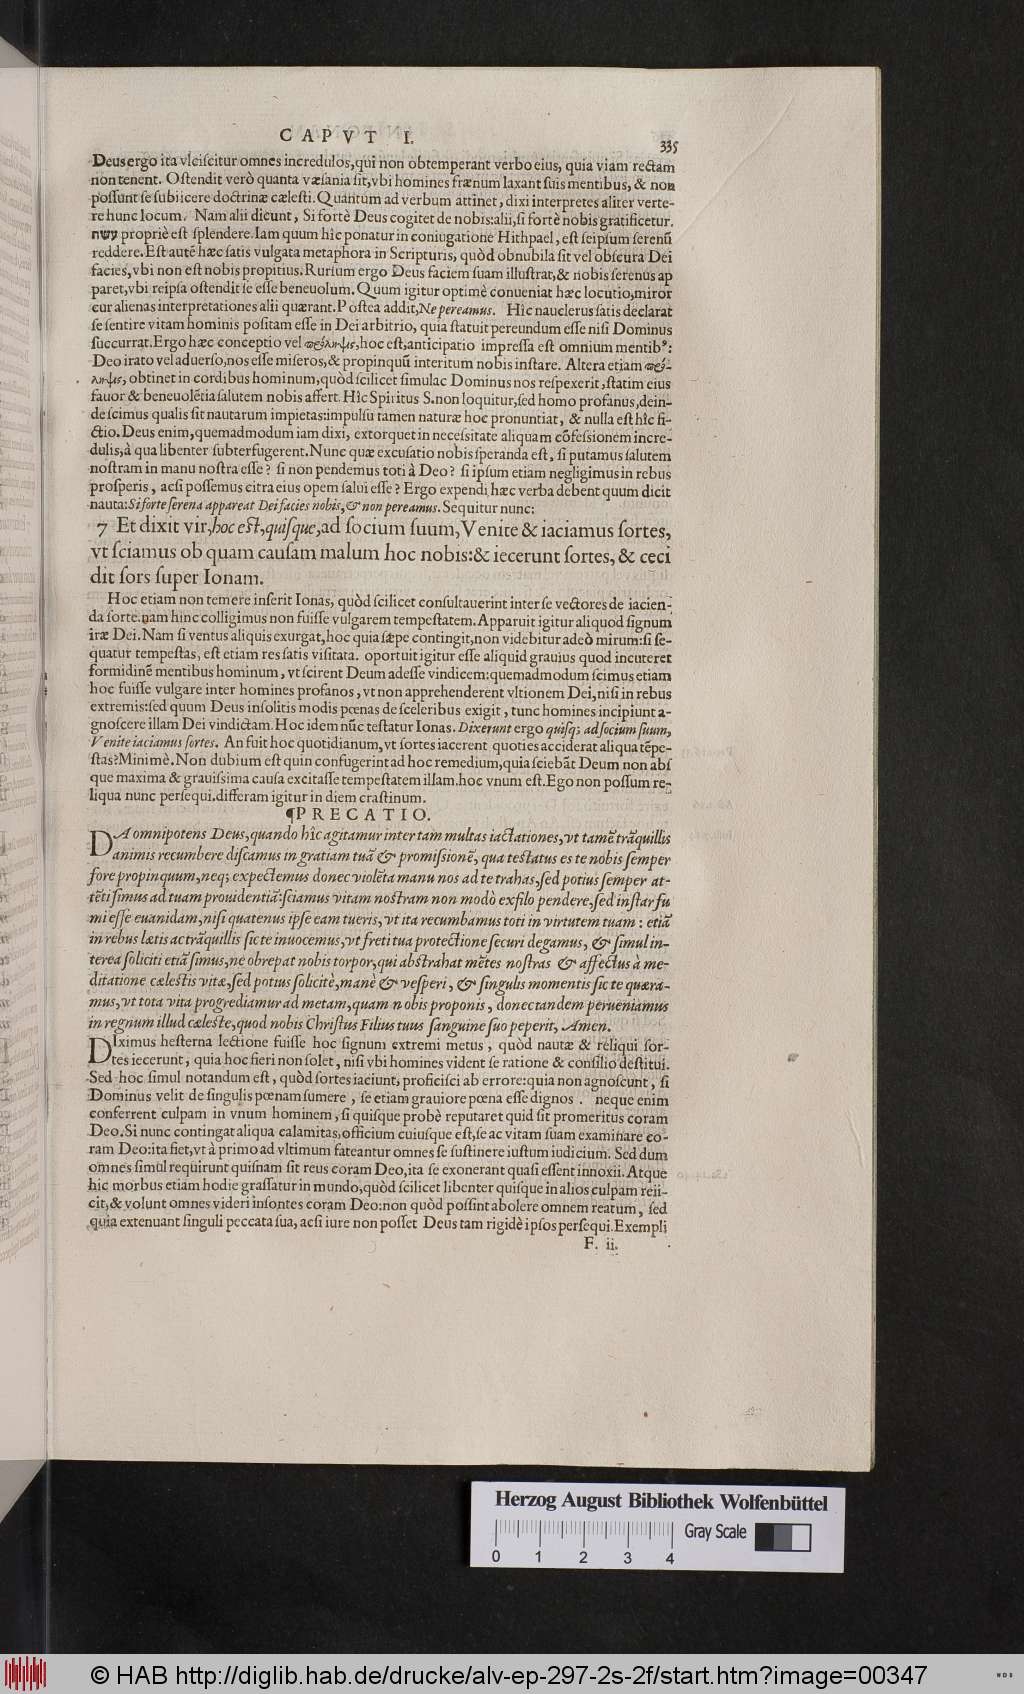 CAPVT I.
335
Deus ergo ita vlciſcitur omnes incredulos, qui non obtemperant verbo eius, quia viam rectam
non tenent. Oſtendit verò quanta væſania ſit, vbi homines frænum laxant ſuis mentibus, & non
poſſunt ſe ſubiicere doctrinæ cæleſti. Quantum ad verbum attinet, dixi interpretes aliter verte-
re hunc locum. Nam alii dicunt, Si fortè Deus cogitet de nobis: alii, ſi fortè nobis gratificetur.
עשת propriè eſt ſplendere. Iam quum hîc ponatur in coniugatione Hithpael, eſt ſeipſum ſerenū
reddere. Eſt autē hæc ſatis vulgata metaphora in Scripturis, quòd obnubila ſit vel obſcura Dei
facies, vbi non eſt nobis propitius. Rurſum ergo Deus faciem ſuam illuſtrat, & nobis ſerenus ap
paret, vbi reipſa oſtendit ſe eſſe beneuolum. Quum igitur optimè conueniat hæc locutio, miror
cur alienas interpretationes alii quærant. Poſtea addit, Ne pereamus. Hîc nauclerus ſatis declarat
ſe ſentire vitam hominis poſitam eſſe in Dei arbitrio, quia ſtatuit pereundum eſſe niſi Dominus
ſuccurrat. Ergo hæc conceptio vel πρόληψις, hoc eſt, anticipatio impreſſa eſt omnium mentibꝰ:
Deo irato vel aduerſo, nos eſſe miſeros, & propinquū interitum nobis inſtare. Altera etiam πρό-
ληψις, obtinet in cordibus hominum, quòd ſcilicet ſimulac Dominus nos reſpexerit, ſtatim eius
fauor & beneuolētia ſalutem nobis affert. Hîc Spiritus S. non loquitur, ſed homo profanus, dein-
de ſcimus qualis ſit nautarum impietas: impulſu tamen naturæ hoc pronuntiat, & nulla eſt hîc fi-
ctio. Deus enim, quemadmodum iam dixi, extorquet in neceſſitate aliquam cōfeſsionem incre-
dulis, à qua libenter ſubterfugerent. Nunc quæ excuſatio nobis ſperanda eſt, ſi putamus ſalutem
noſtram in manu noſtra eſſe? ſi non pendemus toti à Deo? ſi ipſum etiam negligimus in rebus
proſperis, acſi poſſemus citra eius opem ſalui eſſe? Ergo expendi hæc verba debent quum dicit
nauta: Si forte ſerena appareat Dei facies nobis, & non pereamus. Sequitur nunc:
7 Et dixit vir, hoc eſt, quiſque, ad ſocium ſuum, Venite & iaciamus ſortes,
vt ſciamus ob quam cauſam malum hoc nobis: & iecerunt ſortes, & ceci
dit ſors ſuper Ionam.
Hoc etiam non temere inſerit Ionas, quòd ſcilicet conſultauerint inter ſe vectores de iacien-
da ſorte. nam hinc colligimus non fuiſſe vulgarem tempeſtatem. Apparuit igitur aliquod ſignum
iræ Dei. Nam ſi ventus aliquis exurgat, hoc quia ſæpe contingit, non videbitur adeò mirum: ſi ſe-
quatur tempeſtas, eſt etiam res ſatis viſitata. oportuit igitur eſſe aliquid grauius quod incuteret
formidinē mentibus hominum, vt ſcirent Deum adeſſe vindicem: quemadmodum ſcimus etiam
hoc fuiſſe vulgare inter homines profanos, vt non apprehenderent vltionem Dei, niſi in rebus
extremis: ſed quum Deus inſolitis modis pœnas de ſceleribus exigit, tunc homines incipiunt a-
gnoſcere illam Dei vindictam. Hoc idem nūc teſtatur Ionas. Dixerunt ergo quiſq; ad ſocium ſuum,
Venite iaciamus ſortes. An fuit hoc quotidianum, vt ſortes iacerent quoties acciderat aliqua tēpe-
ſtas? Minimè. Non dubium eſt quin confugerint ad hoc remedium, quia ſciebāt Deum non abſ
que maxima & grauiſsima cauſa excitaſſe tempeſtatem illam. hoc vnum eſt. Ego non poſſum re-
liqua nunc perſequi. differam igitur in diem craſtinum.
¶PRECATIO.
DA omnipotens Deus, quando hîc agitamur inter tam multas iactationes, vt tamē trāquillis
animis recumbere diſcamus in gratiam tuā & promiſsionē, qua teſtatus es te nobis ſemper
fore propinquum, neq; expectemus donec violēta manu nos ad te trahas, ſed potius ſemper at-
tēti ſimus ad tuam prouidentiā: ſciamus vitam noſtram non modò ex filo pendere, ſed inſtar fu
mi eſſe euanidam, niſi quatenus ipſe eam tueris, vt ita recumbamus toti in virtutem tuam: etiā
in rebus lætis ac trāquillis ſic te inuocemus, vt freti tua protectione ſecuri degamus, & ſimul in-
terea ſoliciti etiā ſimus, ne obrepat nobis torpor, qui abſtrahat mētes noſtras & affectus à me-
ditatione cæleſtis vitæ, ſed potius ſolicitè, manè & veſperi, & ſingulis momentis ſic te quæra-
mus, vt tota vita progrediamur ad metam, quam nobis proponis, donec tandem perueniamus
in regnum illud cæleſte, quod nobis Chriſtus Filius tuus ſanguine ſuo peperit, Amen.
DIximus heſterna lectione fuiſſe hoc ſignum extremi metus, quòd nautæ & reliqui ſor-
tes iecerunt, quia hoc fieri non ſolet, niſi vbi homines vident ſe ratione & conſilio deſtitui.
Sed hoc ſimul notandum eſt, quòd ſortes iaciunt, proficiſci ab errore: quia non agnoſcunt, ſi
Dominus velit de ſingulis pœnam ſumere, ſe etiam grauiore pœna eſſe dignos. neque enim
conferrent culpam in vnum hominem, ſi quiſque probè reputaret quid ſit promeritus coram
Deo. Si nunc contingat aliqua calamitas, officium cuiuſque eſt, ſe ac vitam ſuam examinare co-
ram Deo: ita fiet, vt à primo ad vltimum fateantur omnes ſe ſuſtinere iuſtum iudicium. Sed dum
omnes ſimul requirunt quiſnam ſit reus coram Deo, ita ſe exonerant quaſi eſſent innoxii. Atque
hic morbus etiam hodie graſſatur in mundo, quòd ſcilicet libenter quiſque in alios culpam reii-
cit, & volunt omnes videri inſontes coram Deo: non quòd poſſint abolere omnem reatum, ſed
quia extenuant ſinguli peccata ſua, acſi iure non poſſet Deus tam rigidè ipſos perſequi. Exempli
F. ii.
Herzog August Bibliothek Wolfenbüttel
Gray Scale
0 1 2 3 4
© HAB http://diglib.hab.de/drucke/alv-ep-297-2s-2f/start.htm?image=00347